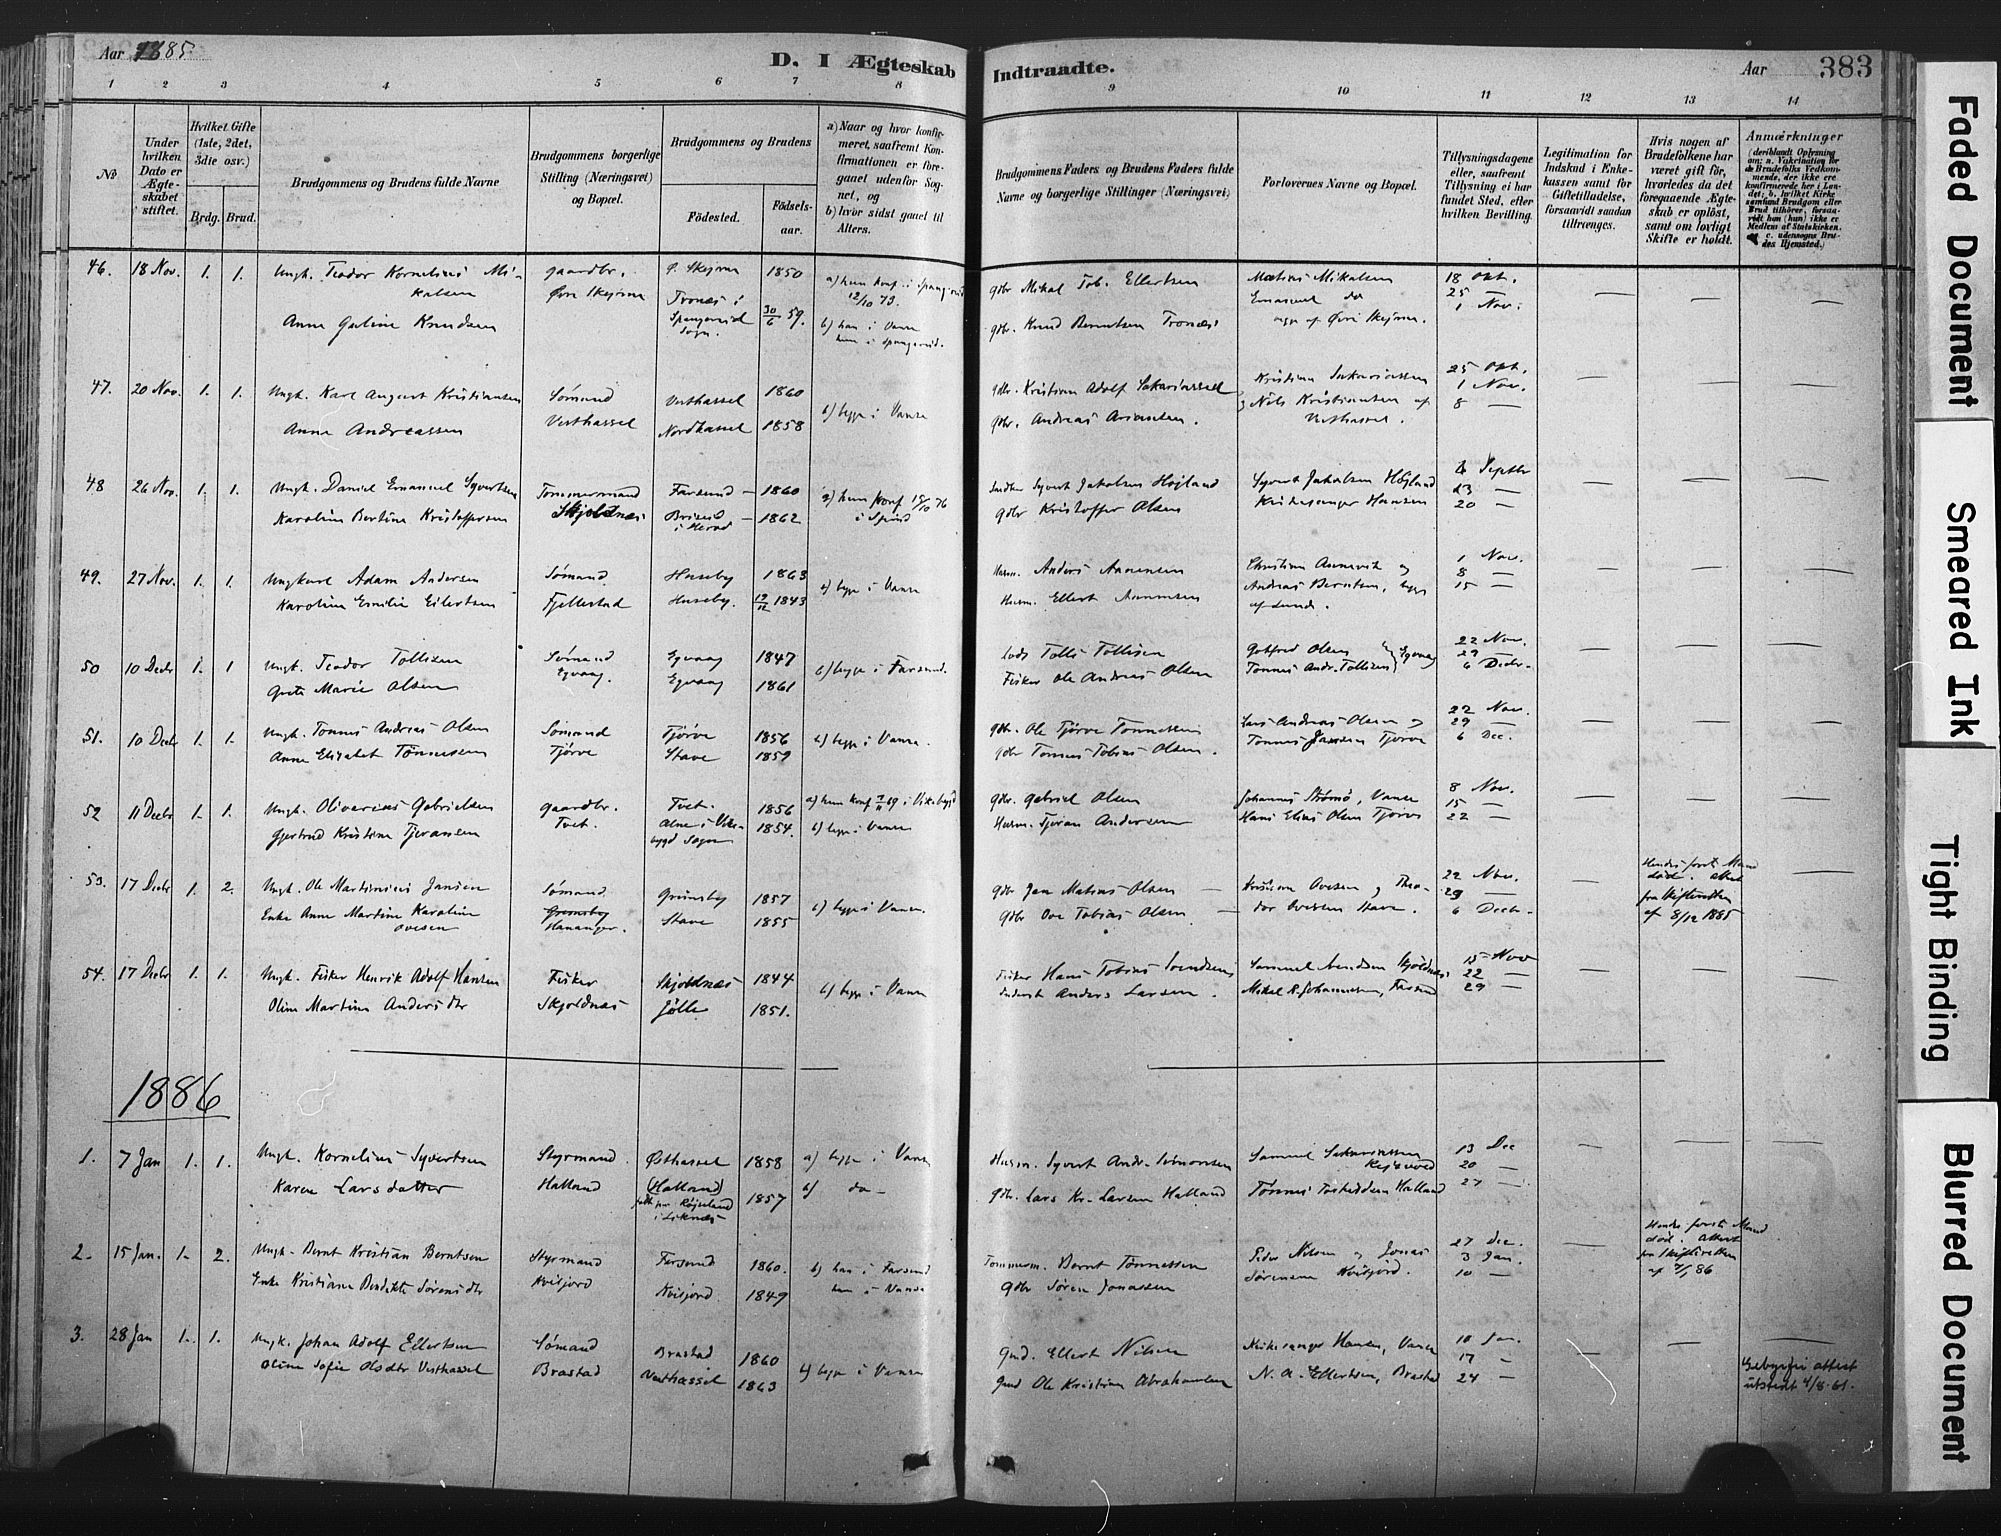 Aar 1885
D. I Ægteskab Indtraadte.
Aar
383
1 2 3 4 5 6 7 8 9 10 11 12 13 14
No
Under hvilken Dato er Ægteskabet stiftet.
Hvilket Gifte (1ste, 2det, 3die osv.)
Brdg. Brud.
Brudgommens og Brudens fulde Navne
Brudgommens borgerlige Stilling (Næringsvei) og Bopæl.
Brudgommens og Brudens
Fødested.
Fødselsaar.
a) Naar og hvor konfirmeret, saafremt Konfirmationen er foregaaet udenfor Sognet, og
b) hvor sidst gaaet til Alters.
Brudgommens Faders og Brudens Faders fulde Navne og borgerlige Stillinger (Næringsvei)
Forlovernes Navne og Bopæl.
Tillysningsdagene eller, saafremt Tillysning ei har fundet Sted, efter hvilken Bevilling.
Legitimation for Indskud i Enkekassen samt for Giftetilladelse, forsaavidt saadan tiltrænges.
Hvis nogen af Brudefolkene har været gift før, hvorledes da det foregaaende Ægteskab er opløst, samt om lovligt Skifte er holdt.
Anmærkninger
(deriblandt Oplysning om: a. Vakcination for de Brudefolks Vedkommende, der ikke ere konfirmerede her i Landet; b. hvilket Kirkesamfund Brudgom eller Brud tilhører, forsaavidt han (hun) ikke er Medlem af Statskirken. c. udensogns Brudes Hjemsted.)
46. 18 Nov. 1. 1. Ungk. Teodor Kornelius Mikalsen
Anne Gurine Knudsen
gaardbr. Øvre Skejvra
Ø. Skejvra 1850
Tronæs i Spangereid Sogn. 30/6 59.
a) hun konf. i Spangereid 12/10 73.
b) han i Vanse hun i Spangereid.
gdbr Mikal Tob. Ellertsen
gdbr. Knud Berntsen Tronæs
Matias Mikalsen
Emanuel do
18 Okt.
25 —
1 Nov.
47. 20 Nov. 1. 1. Ungk. Karl August Kristiansen
Anne Andreassen
Sømand Vesthassel
Vesthassel 1860
Nordhassel 1858
b) begge i Vanse
gdbr. Kristian Adolf Sakariassen
gdbr. Andreas Arianssen.
Kristian Sakariassen
og Nils Kristiansen af Vesthassel.
25 Okt.
1 Nov.
8 —
48 26 Nov. 1. 1. Ungk. Daniel Emanuel Syvertsen
Karoline Bertine Kristoffersen
Tømmermand Skjoldnæs
Farsund — 1860
Briseid i Herad — 1862
a) hun konf 15/10 76 i Spind
Syvert Jakobsen Højland
gdbr Kristoffer Olsen
Syvert Jakobsen Højland
Kirkesanger Hansen
Septbr
13 —
20 —
49. 27 Nov. 1. 1. Ungkarl Adam Andersen
Karoline Emilie Eilertsen
Sømand Fjellestad
Huseby 1863
Huseby. 1843
b) begge i Vanse
Husm. Anders Aanensen
Husm. Ellert Aanensen
Christian Aunevik og
Andreas Berntsen, begge af Lunde.
1 Nov.
8 —
15 —
50 10 Decbr 1. 1 Ungk. Teodor Tollisen
Grete Marie Olsen
Sømand Egvaag.
Egvaag 1847
Egvaag 1861
b) begge i Farsund.
Lods Tollis Tollisen
Fisker Ole Andreas Olsen
Gotfred Olsen
Tønnes Andr. Tollisen Egvaag
22 Nov.
29 —
6 Decbr.
51. 10 Decbr 1. 1. Ungk. Tønnes Andreas Olsen
Anne Elisabet Tønnesen
Sømand Tjørve
Tjørve 1856
Stave 1859
b) begge i Vanse.
gdbr. Ole Tjørve Tønnessen
gdbr Tønnes Tobias Olsen.
Lars Andreas Olsen og
Tønnes Jansen Tjørve
22 Nov.
29 —
6 Dec.
52 11 Decbr 1. 1. Ungk. Oliverius Gabrielsen
Gjertrud Kristine Tjeransen
gaardbr. Tvet.
Tvet. 1856
Alne i Viksbygd Sogn 1854.
a) hun konf i Viksbygd
b) begge i Vanse
gdbr. Gabriel Olsen
Husm. Tjeran Andersen
Johannes Strømø, Vanse
Hans Elias Olsen Tjørve
8 Nov.
15 —
22 —
53. 17 Decbr 1. 2. Ungk. Ole Martinius Jansen
Enke Anne Martine Karoline Ovesen
Sømand Grimsby Hananger.
Grimsby 1857
Stave 1855
b) begge i Vanse.
gdbr Jan Matias Olsen —
gdbr Ove Tobias Olsen —
Kristian Ovesen og Theodor Ovesen Stave.
22 Nov.
29 —
6 Decbr.
Hendes første Mand død. Attest fra Skifteretten af 8/12 1885
54. 17 Decbr 1. 1. Ungk. Fisker Henrik Adolf Hansen
Oline Martine Andersdtr
Fisker Skjoldnæs
Skjoldnæs 1844
Jølle 1851.
b) begge i Vanse
Fisker Hans Tobias Svendsen
Inderst Anders Larsen.
Samuel Svendsen Skjoldnæs
Mikal R. Johannessen, Farsund
15 Nov
22 —
29 —
1886
1. 7 Jan 1. 1. Ungk. Kornelius Syvertsen
Karen Larsdatter
Styrmand Halland
Østhassel 1858
(Halland) født paa Røjseland i Liknæs 1857
a) begge i Vanse
b) do —
Husm. Syvert Andr. Simonsen
gdbr. Lars Kr. Larsen Halland
Samuel Sakariassen
Tønnes Halland
13 Dec
20 —
27 —
2. 15 Jan. 1. 2. Ungk. Bernt Kristian Berntsen
Enke Kristiane Bendikte Sørensdtr
Styrmand Kvisjord
Farsund 1860.
Kvisjord. 1849
b) han i Farsund hun i Vanse
Tømmerm. Bernt Tønnessen
gdbr Søren Jonassen
Peder Nilsen og Jonas
Sørensen Kvisjord.
27 Dec.
3 Jan.
10 —
Hendes første Mand død. Attest fra Skifteretten af 7/1 86
3. 28 Jan 1. 1. Ungk. Johan Adolf Ellertsen
Oline Sofie Olsdtr Vesthassel
Sømand Brastad
Brastad 1860
Vesthassel 1863
b) begge i Vanse
Gmd. Ellert Nilsen
Gmd Ole Kristian Abrahamsen
Kirkesanger Hansen, Vanse
N. A. Ellertsen, Brastad
10 Jan.
17 —
24 —
Gebyrfri attest utstedt 4/8-61.
Faded Document
Smeared Ink
Tight Binding
Blurred Document